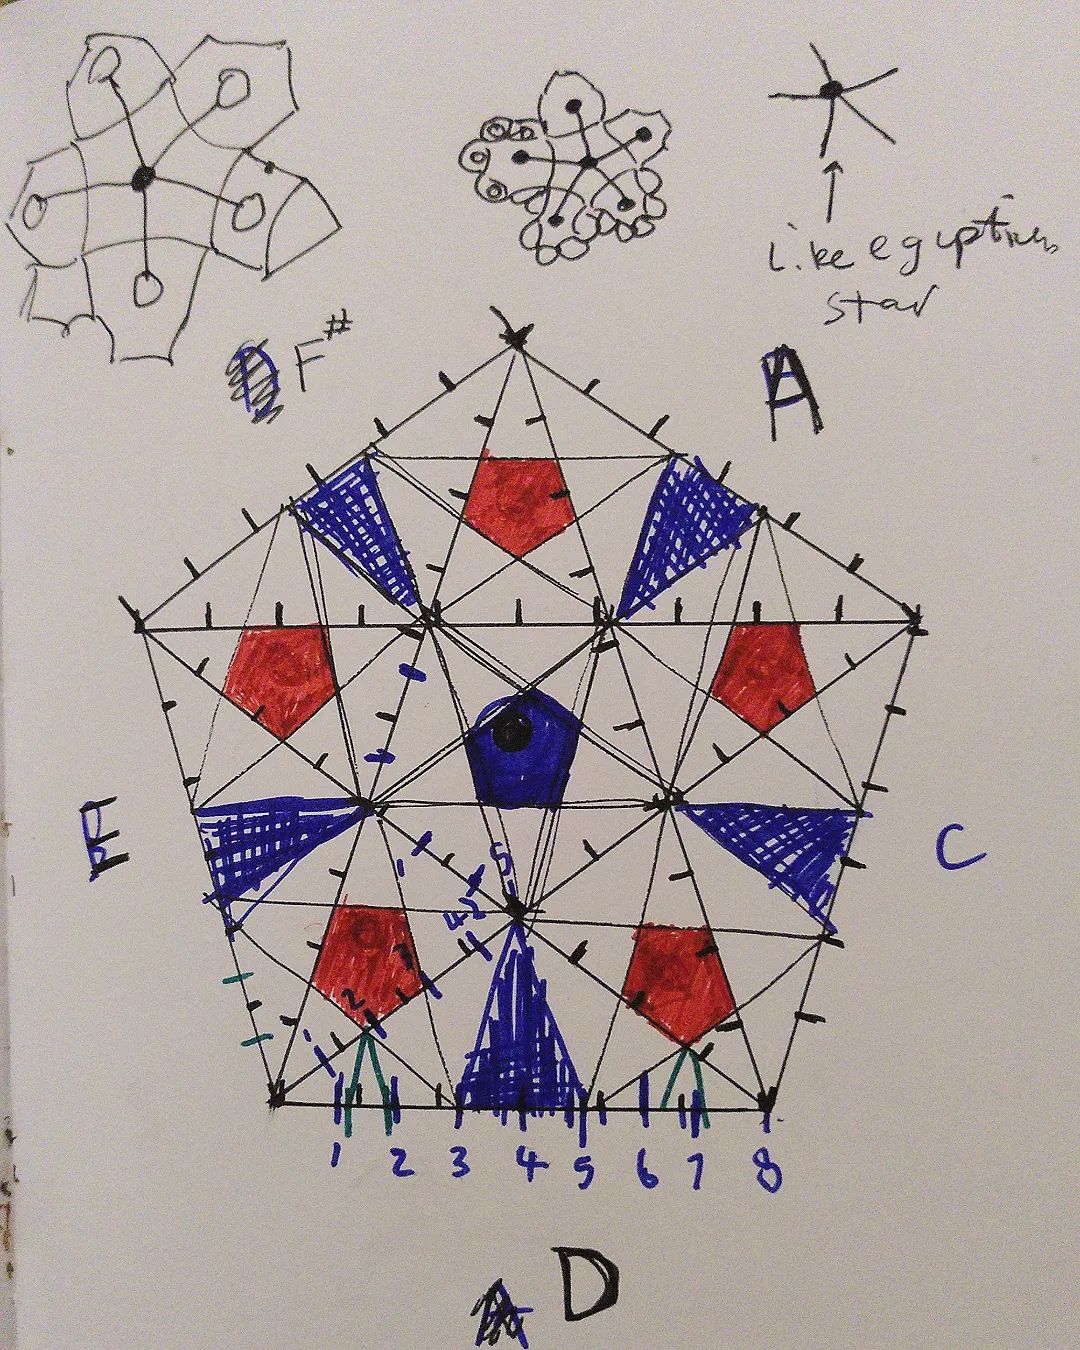 Like eguptians
star
F#
A
E
C
5
1
4 2
3
2
1
1 2 3 4 5 6 7 8
D